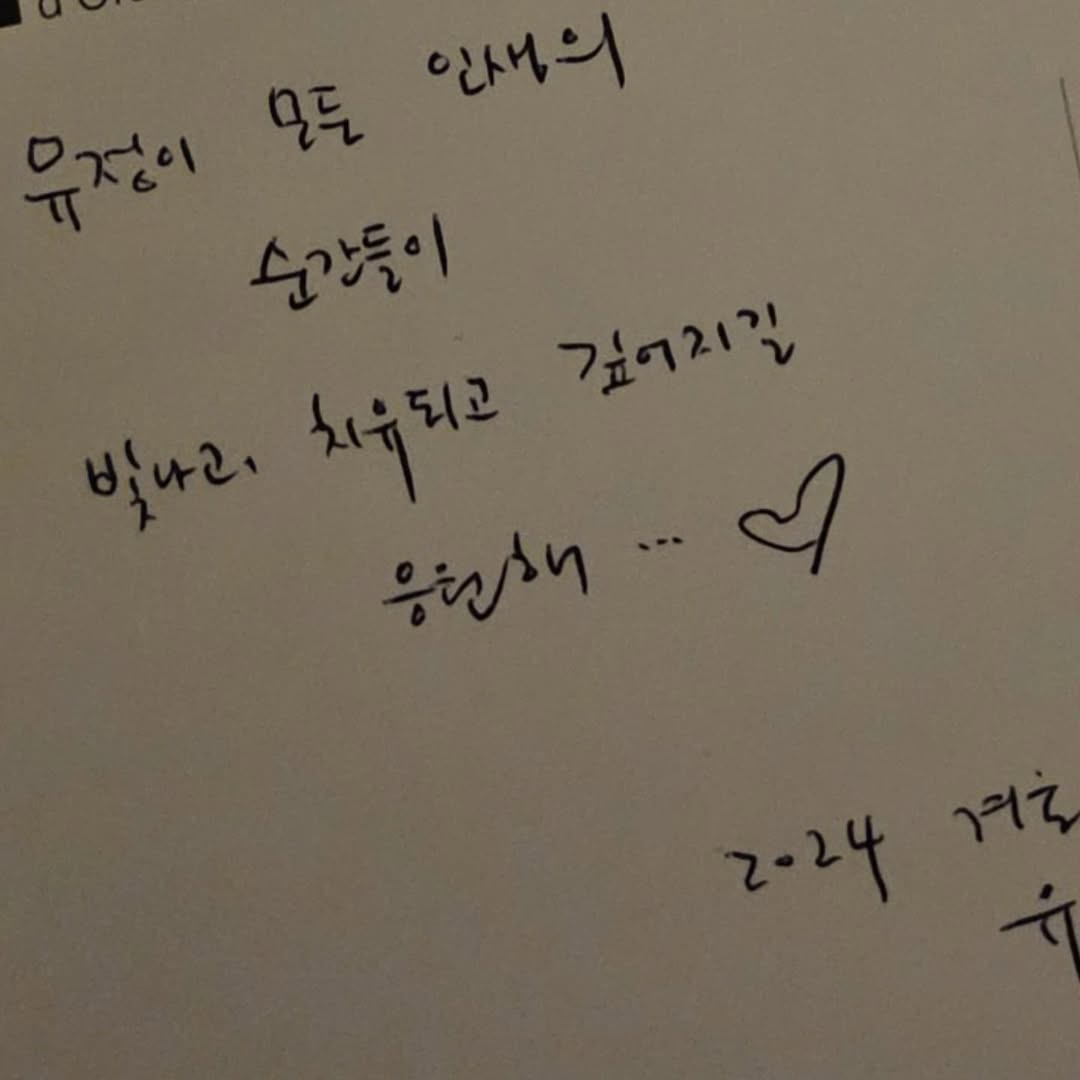 유정이 모든 인생의
순간들이
빛나고, 치유되고 깊어지길
응원해 ... ♡
2024 겨울